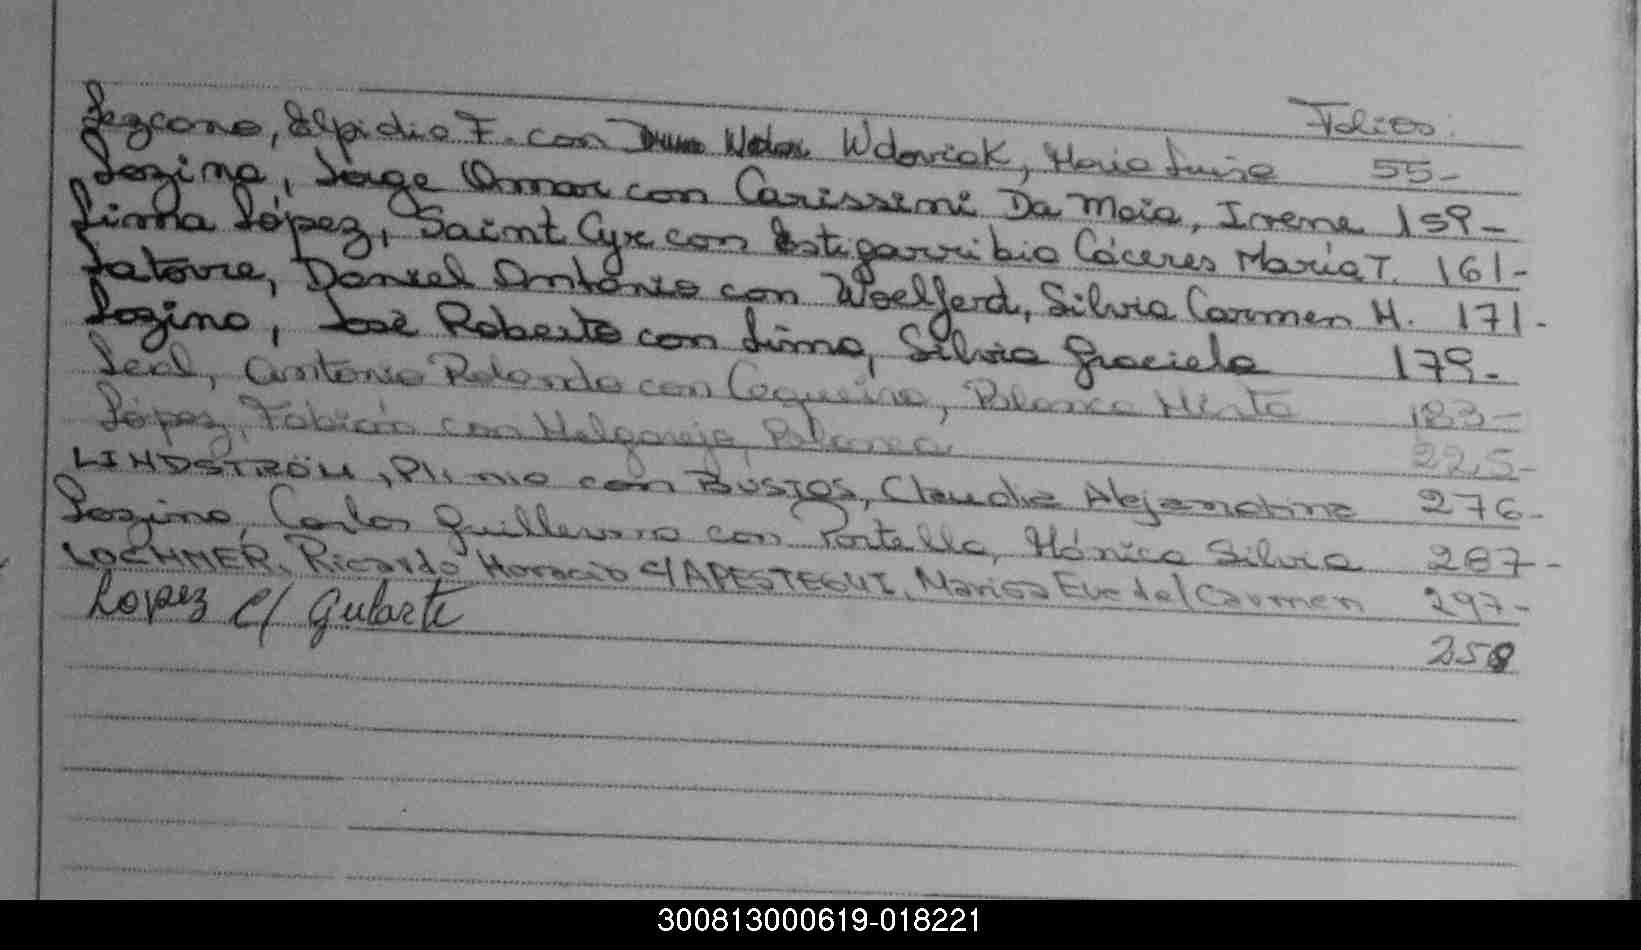 Folios.
Lezcano, Elpidio F. con Wdoviak, María Luisa 55-
Lozina, Jorge Omar con Carissimi Da Maia, Irene 159-
Lima López, Saint Cyr con Estigarribia Cáceres María T. 161-
Latovre, Daniel Antonio con Woelferd, Silvia Carmen H. 171-
Lozino, José Roberto con Lima, Silvia Graciela 179-
Leal, Antonio Rolando con Cequeira, Blanca Mirta 183-
López, Fabián con Melgarejo, Blanca 225-
LINDSTRÖM, Plinio con BUSTOS, Claudia Alejandrina 276-
Lozina, Carlos Guillermo con Portella, Mónica Silvia 287-
LOCHNER, Ricardo Horacio c/ APESTEGUI, Marisa Eve del Carmen 297-
Lopez c/ Gularte 258
300813000619-018221